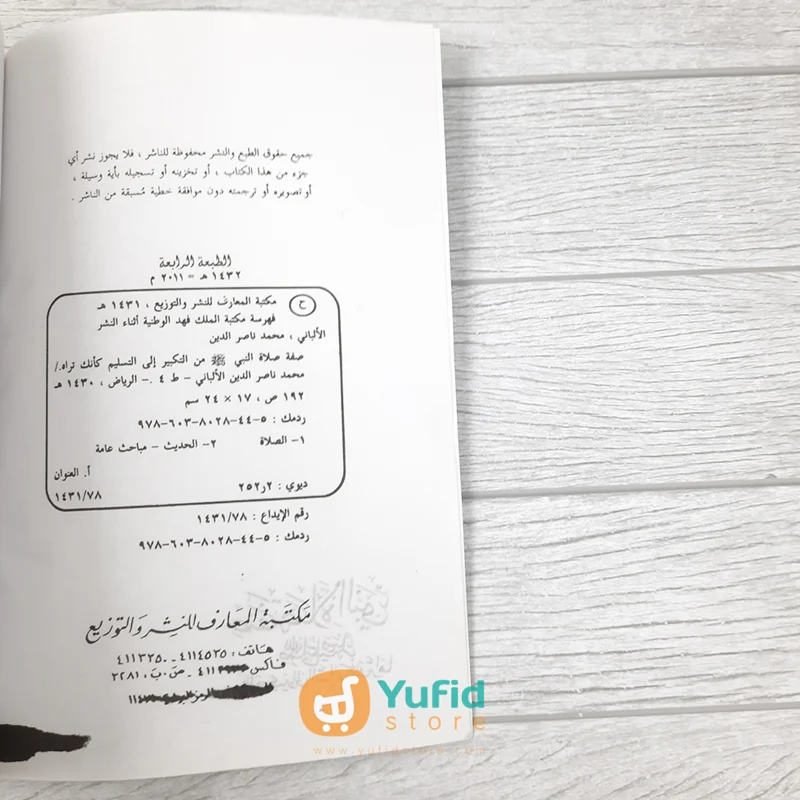 جميع حقوق الطبع والنشر محفوظة للناشر ، فلا يجوز نشر أي
جزء من هذا الكتاب ، أو تخزينه أو تسجيله بأية وسيلة ،
أو تصويره أو ترجمته دون موافقة خطية مُسبقة من الناشر .
الطبعة الرابعة
١٤٣٢ هـ = ٢٠١١ م
ح مكتبة المعارف للنشر والتوزيع ، ١٤٣١ هـ
فهرسة مكتبة الملك فهد الوطنية أثناء النشر
الألباني ، محمد ناصر الدين
صفة صلاة النبي ﷺ من التكبير إلى التسليم كأنك تراه./
محمد ناصر الدين الألباني – ط ٤ .– الرياض ، ١٤٣٠ هـ
١٩٢ ص ، ١٧ × ٢٤ سم
ردمك : ٥-٤٤-٨٠٢٨-٦٠٣-٩٧٨
١- الصلاة ٢- الحديث – مباحث عامة
أ. العنوان
ديوي : ٢ر٢٥٢ ١٤٣١/٧٨
رقم الإيداع : ١٤٣١/٧٨
ردمك : ٥-٤٤-٨٠٢٨-٦٠٣-٩٧٨
مكتبة المعارف للنشر والتوزيع
هاتف : ٤١١٤٥٣٥ ـ ٤١١٣٣٥٠
فاكس ـ ص.ب. ٣٢٨١٠
Yufid
store
www.yufidstore.com